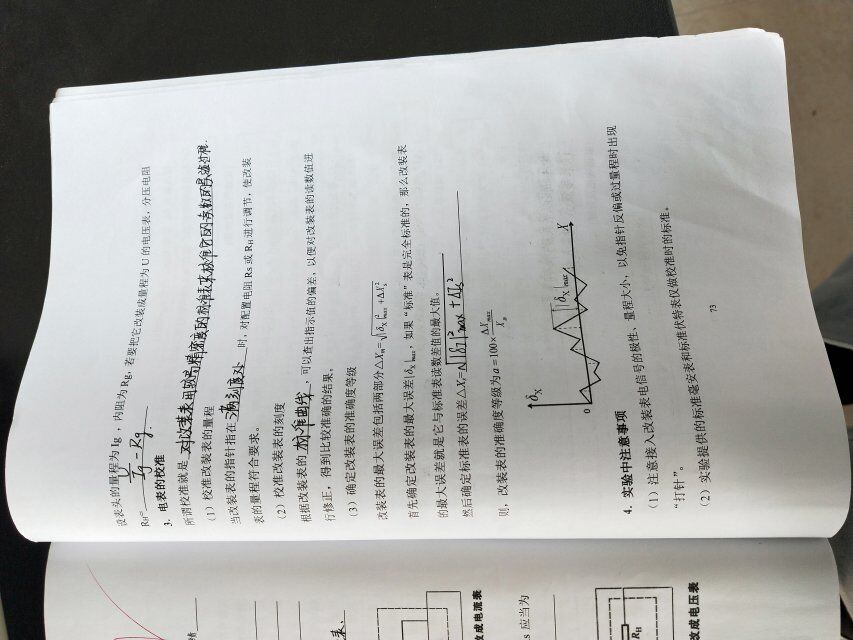 设表头的量程为 Ig，内阻为 Rg，若要把它改装成量程为 U 的电压表，分压电阻
R_H= U/Ig - Rg.
3. 电表的校准
所谓校准就是
（1）校准改装表的量程
当改装表的指针指在 满刻度处 时，对配置电阻 Rs 或 R_H 进行调节，使改装
表的量程符合要求。
（2）校准改装表的刻度
根据改装表的 校准曲线，可以查出指示值的偏差，以便对改装表的读数值进
行修正，得到比较准确的结果。
（3）确定改装表的准确度等级
改装表的最大误差包括两部分 △X_m=√|δ_X|²_max + △X_s²
首先确定改装表的最大误差|δ_X|_max，如果“标准”表是完全标准的，那么改装表
的最大误差就是它与标准表读数差值的最大值。
然后确定标准表的误差△X_s
则，改装表的准确度等级为 a =100× △X_max/X_n
δ_X
|δ_X|_max
0
X
4. 实验中注意事项
（1）注意接入改装表电信号的极性、量程大小，以免指针反偏或过量程时出现
“打针”。
（2）实验提供的标准毫安表和标准伏特表仅做校准时的标准。
73
绩
表、
改成电流表
s 应当为
R_H
改成电压表